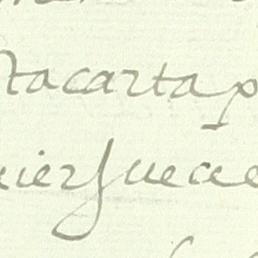 ta carta p
uier Juece